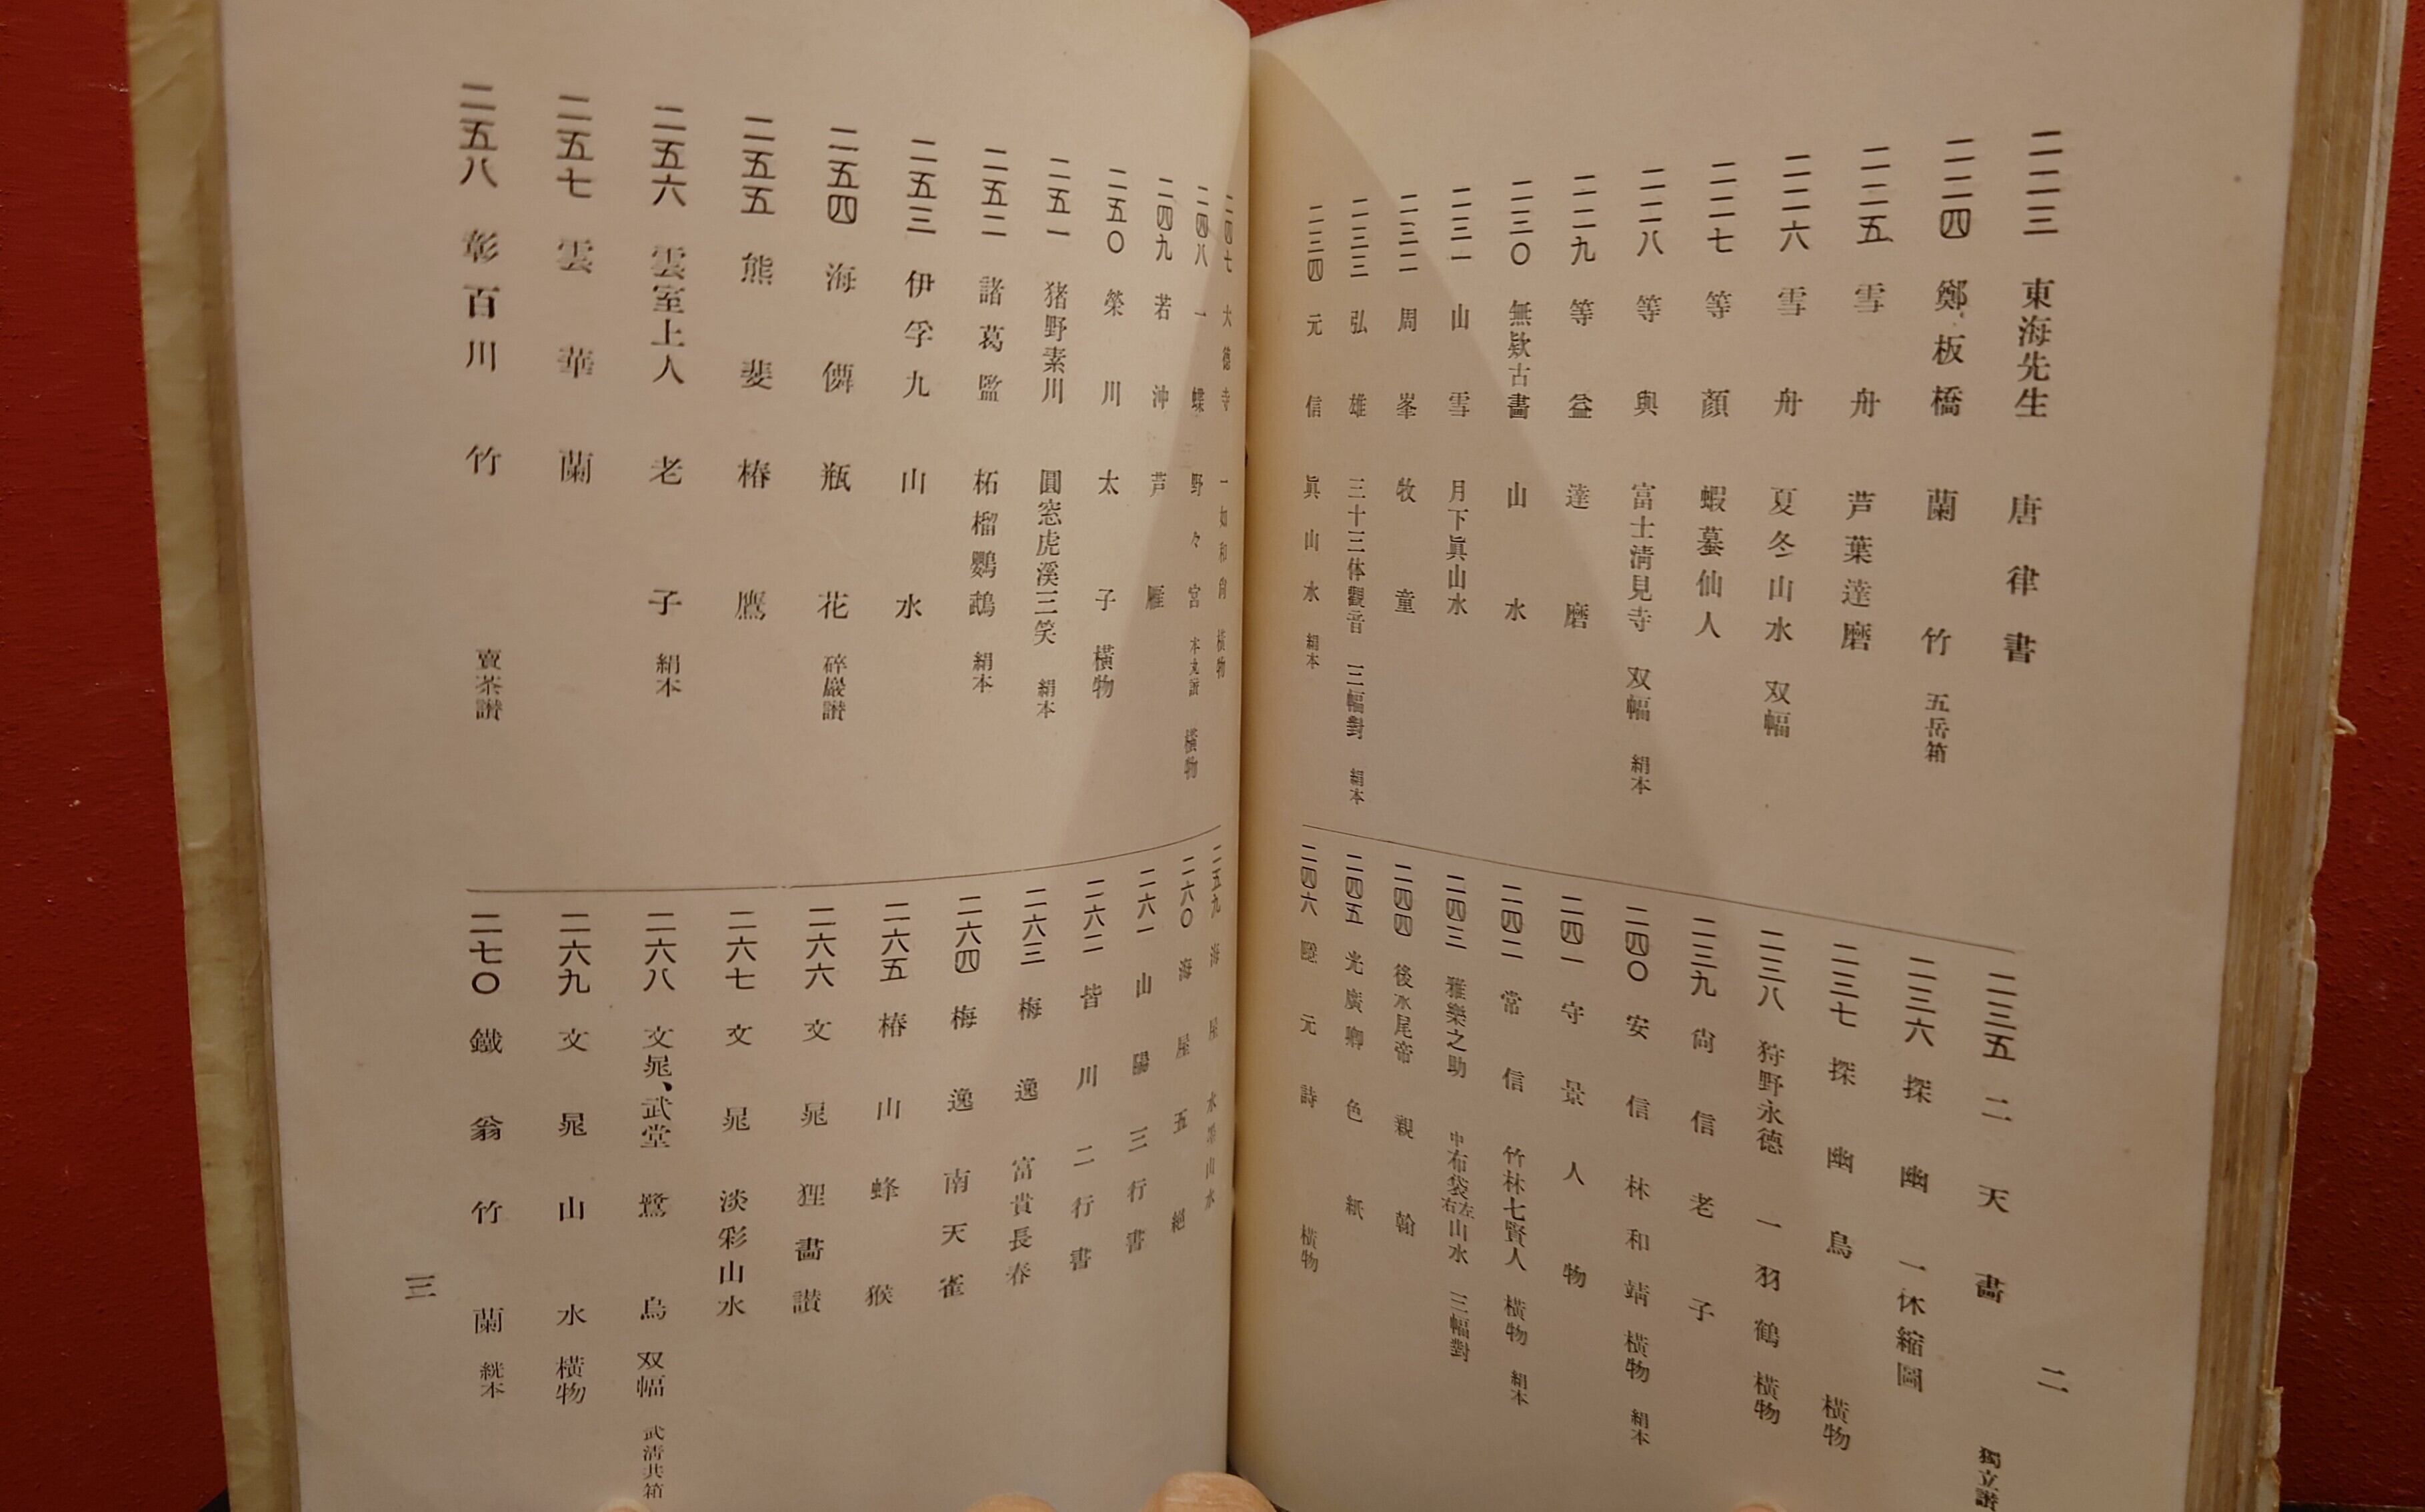 二二三 東海先生 唐律書
二二四 鄭板橋 蘭竹 五岳箱
二二五 雪舟 芦葉達磨
二二六 雪舟 夏冬山水 双幅
二二七 等顏 蝦蟇仙人
二二八 等與 富士淸見寺 双幅 絹本
二二九 等益 達磨
二三〇 無欵古畵 山水
二三一 山雪 月下眞山水
二三二 周峯 牧童
二三三 弘雄 三十三体觀音 三幅對 絹本
二三四 元信 眞山水 絹本
二三五 二天畵 獨立讃
二三六 探幽 一休縮圖
二三七 探幽 鳥 橫物
二三八 狩野永德 一羽鶴 橫物
二三九 尙信 老子
二四〇 安信 林和靖 橫物 絹本
二四一 守景 人物
二四二 常信 竹林七賢人 橫物 絹本
二四三 雅樂之助 中布袋左右山水 三幅對
二四四 後水尾帝 親翰
二四五 光廣卿 色紙
二四六 元詩 橫物
二
二四七 大德寺 一如和尙 橫物
二四八 一蝶 野々宮 橫物
二四九 若沖 芦雁
二五〇 榮川 太子 橫物
二五一 猪野素川 圓窓虎溪三笑 絹本
二五二 諸葛監 柘榴鸚鵡 絹本
二五三 伊孚九 山水
二五四 海僊 瓶花 碎巖讃
二五五 熊斐 椿鷹
二五六 雲室上人 老子 絹本
二五七 雲華 蘭
二五八 彭百川 竹 賣茶讃
二五九 海屋 山水
二六〇 海屋 五絕
二六一 山陽 三行書
二六二 皆川 二行書
二六三 梅逸 富貴長春
二六四 梅逸 南天雀
二六五 椿山 蜂猴
二六六 文晁 狸畵讃
二六七 文晁 淡彩山水
二六八 文晁、武堂 鷺烏 双幅 武淸共箱
二六九 文晁 山水 橫物
二七〇 鐵翁 竹蘭 絖本
三